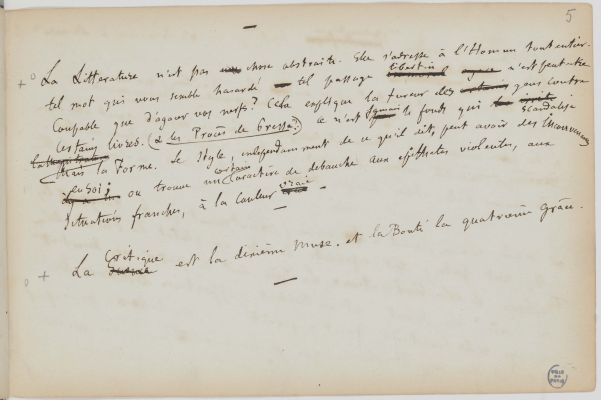 5
La Litterature n'est pas chose abstraite. Elle s'adresse à l'Homme tout entier.
tel mot qui vous semble hasardé tel passage libertin n'est peut-être
Coupable que d'agacer vos nerfs? Cela explique la fureur des gens contre
certains livres. (& les Procès de Presse.) Ce n'est jamais le fonds qui scandalise
Mais la Forme. Le Style, independamment de ce qu'il dit, peut avoir des inconvenances
en soi; ou trouve un certain caractère de debauche aux épithètes violentes, aux
situations franches, à la couleur vraie
La Critique est la dixième Muse. et la Bonté la quatrième grâce.
VILLE DE PARIS